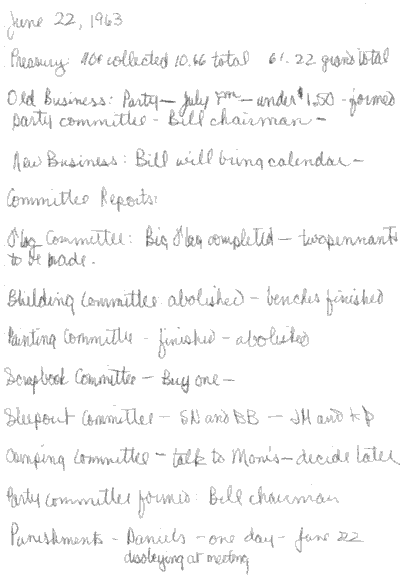 June 22, 1963
Treasury: 90¢ collected 10.66 total 61.22 grand total
Old Business: Party — July — under $1.50 - formed
party committee - Bill chairman -
New Business: Bill will bring calendar -
Committee Reports:
Flag Committee: Big Flag completed - two pennants
to be made.
Building Committee abolished - benches finished
Painting Committe - finished - abolished
Scrapbook Committee - Buy one -
Sleepout Committee - SN and BB - JM and
Camping Committee - talk to Moms - decide later
Party committee formed: Bill chairman
Punishments - Daniels - one day - June 22
disobeying at meeting